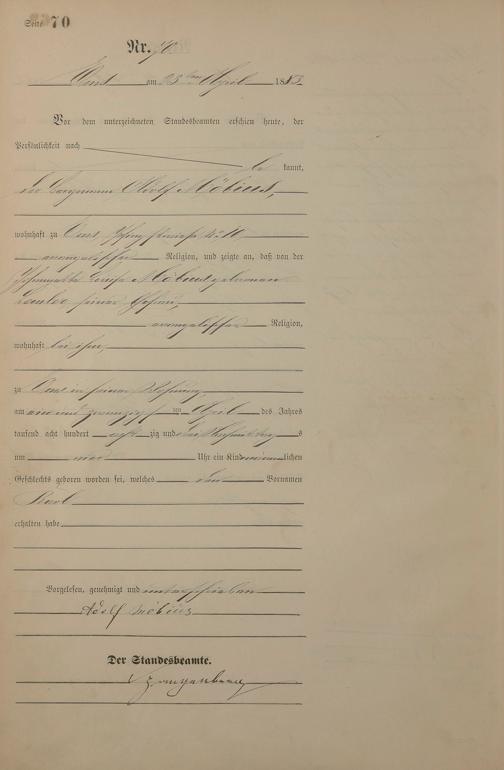 Seite 70
Nr. 70
Ems am 25ten April 1883.
Vor dem unterzeichneten Standesbeamten erschien heute, der
Persönlichkeit nach
be kannt,
der Bergmann Adolf Möbius,
wohnhaft zu Ems
evangelischer Religion, und zeigte an, daß von der
Ehegattin Luise Möbius geborenen
seiner Ehefrau,
evangelischer Religion,
wohnhaft bei ihm,
zu Ems in seiner Wohnung,
am ein und zwanzigsten April des Jahres
tausend acht hundert acht zig und drei Nachmittags
um Uhr ein Kind männlichen
Geschlechts geboren worden sei, welches den Vornamen
Karl
erhalten habe.
Vorgelesen, genehmigt und unterschrieben
Adolf Möbius
Der Standesbeamte.